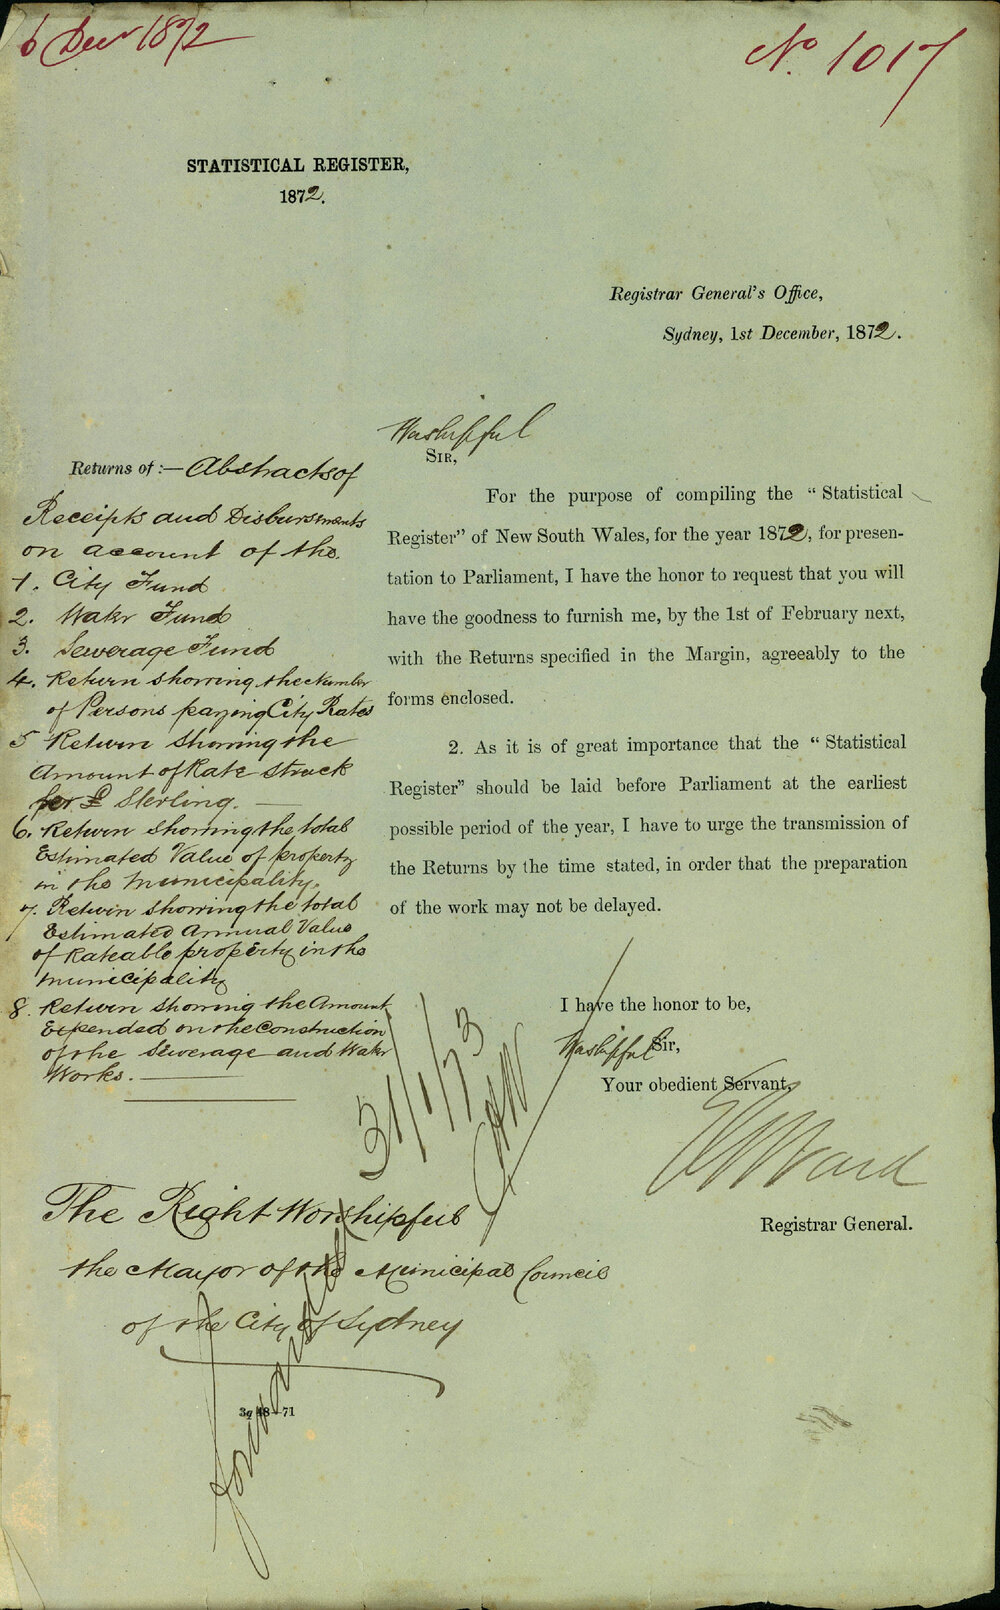 6 Decr 1872
No. 1017
STATISTICAL REGISTER,
1872.
Registrar General's Office,
Sydney, 1st December, 1872.
Returns of :— Abstracts of
Receipts and Disbursements
on account of the
1. City Fund
2. Water Fund
3. Sewerage Fund
4. Return showing the Number
of Persons paying City Rates
5 Return showing the
Amount of Rate struck
per £ Sterling. —
6. Return showing the total
Estimated Value of property
in the Municipality.
7. Return showing the total
Estimated Annual Value
of Rateable property in the
Municipality
8. Return showing the Amount
Expended on the Construction
of the Sewerage and Water
Works. —
Worshipful
SIR,
For the purpose of compiling the "Statistical
Register" of New South Wales, for the year 1872, for presen-
tation to Parliament, I have the honor to request that you will
have the goodness to furnish me, by the 1st of February next,
with the Returns specified in the Margin, agreeably to the
forms enclosed.
2. As it is of great importance that the "Statistical
Register" should be laid before Parliament at the earliest
possible period of the year, I have to urge the transmission of
the Returns by the time stated, in order that the preparation
of the work may not be delayed.
I have the honor to be,
Worshipful Sir,
Your obedient Servant,
Ward
Registrar General.
The Right Worshipful
the Mayor of the Municipal Council
of the City of Sydney
forwarded
31/1/73
3g 48—71